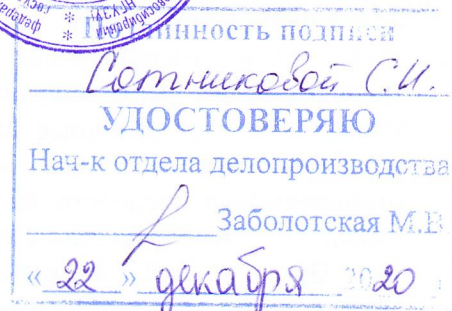 подлинность подписи
Сотниковой С.И.
УДОСТОВЕРЯЮ
Нач-к отдела делопроизводства
Заболотская М.В
« 22 » декабря 2020